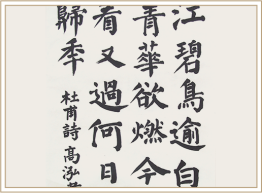 江碧鳥逾白
青華欲燃今
看又過何日
歸秊
杜甫詩高泓